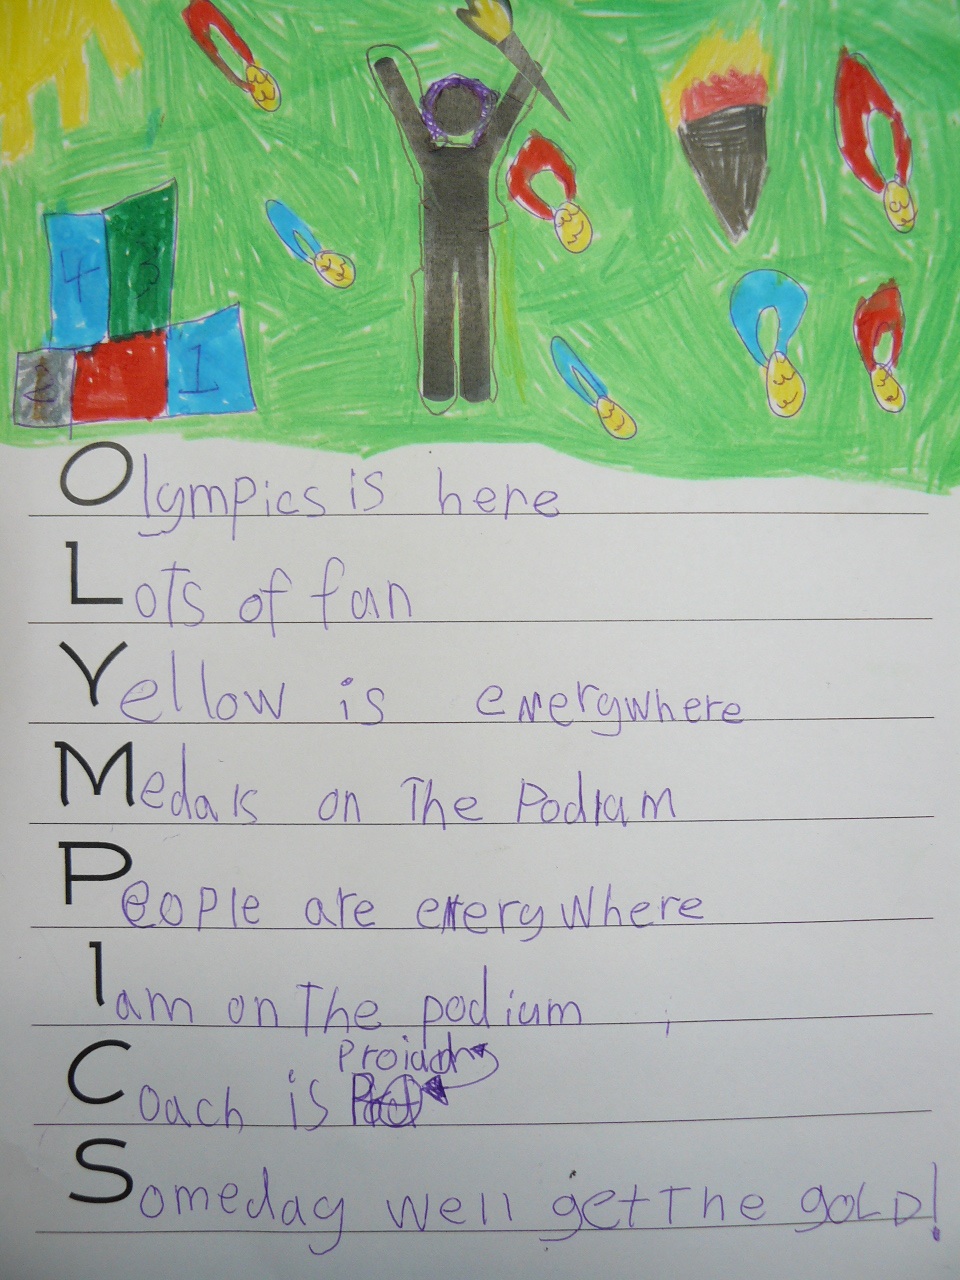 4 3
2 1
Olympics is here
Lots of fan
Yellow is everywhere
Medals on The Podium
People are everywhere
I am on The podium
Coach is
Someday well get The goLD!